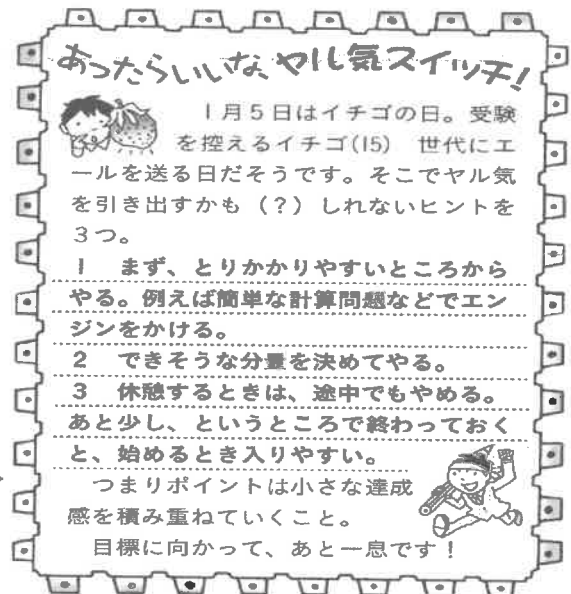 あったらいいな、ヤル気スイッチ!
1月5日はイチゴの日。受験
を控えるイチゴ(15) 世代にエ
ールを送る日だそうです。そこでヤル気
を引き出すかも(?)しれないヒントを
3つ。
1 まず、とりかかりやすいところから
やる。例えば簡単な計算問題などでエン
ジンをかける。
2 できそうな分量を決めてやる。
3 休憩するときは、途中でもやめる。
あと少し、というところで終わっておく
と、始めるとき入りやすい。
つまりポイントは小さな達成
感を積み重ねていくこと。
目標に向かって、あと一息です!